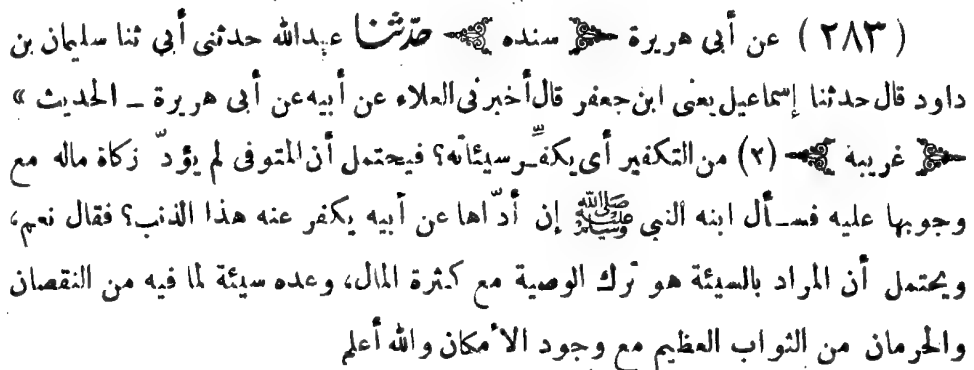 ( ٢٨٣ ) عن أبى هريرة ﴿ سنده ﴾ حدثنا عبدالله حدثنى أبى ثنا سليمان بن
داود قال حدثنا إسماعيل يعنى ابن جعفر قال أخبرنى العلاء عن أبيه عن أبى هريرة ــ الحديث »
﴿ غريبه ﴾ (٢) من التكفير أى يكفِّر سيئاته؟ فيحتمل أن المتوفى لم يؤدّ زكاة ماله مع
وجوبها عليه فسأل ابنه النبى ﷺ إن أدّاها عن أبيه يكفر عنه هذا الذنب؟ فقال نعم،
ويحتمل أن المراد بالسيئة هو ترك الوصية مع كثرة المال، وعده سيئة لما فيه من النقصان
والحرمان من الثواب العظيم مع وجود الأمكان والله أعلم